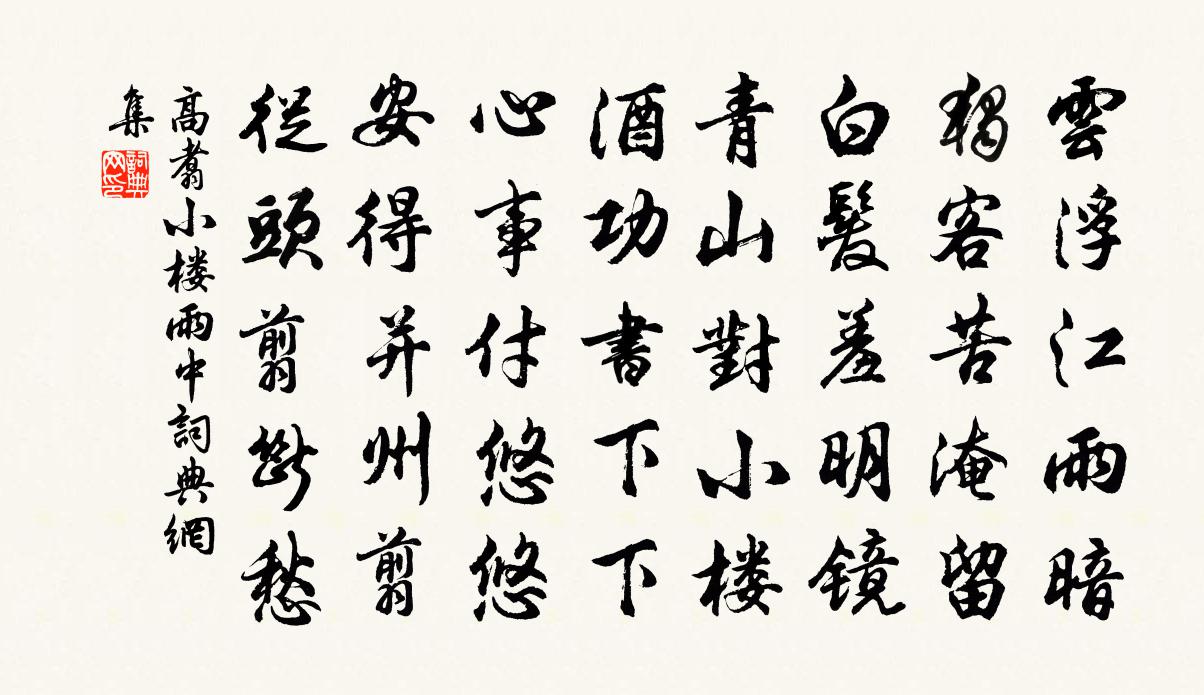 雲浮江雨暗
獨客苦淹留
白髮羞明镜
青山對小楼
酒功書下下
心事付悠悠
安得并州剪
從頭剪斷愁
高翥小楼雨中詞典網
集
詞典网印